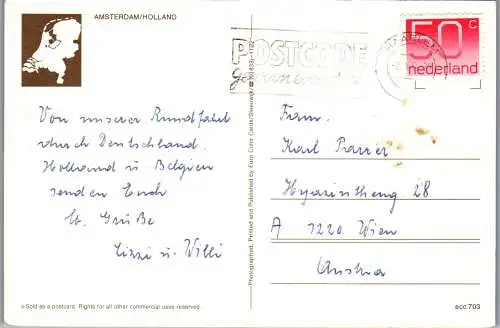 AMSTERDAM/HOLLAND
POSTCODE
50 c
nederland
Von unserer Rundfahrt
durch Deutschland,
Holland u Belgien
senden Euch
lb. Grüße
Lizzi u. Willi
Fam.
Karl
28
A 1220 Wien
Austria
Photographed, Printed and Published by Euro Color Cards
Sold as a postcard. Rights for all other commercial uses reserved.
ecc 703